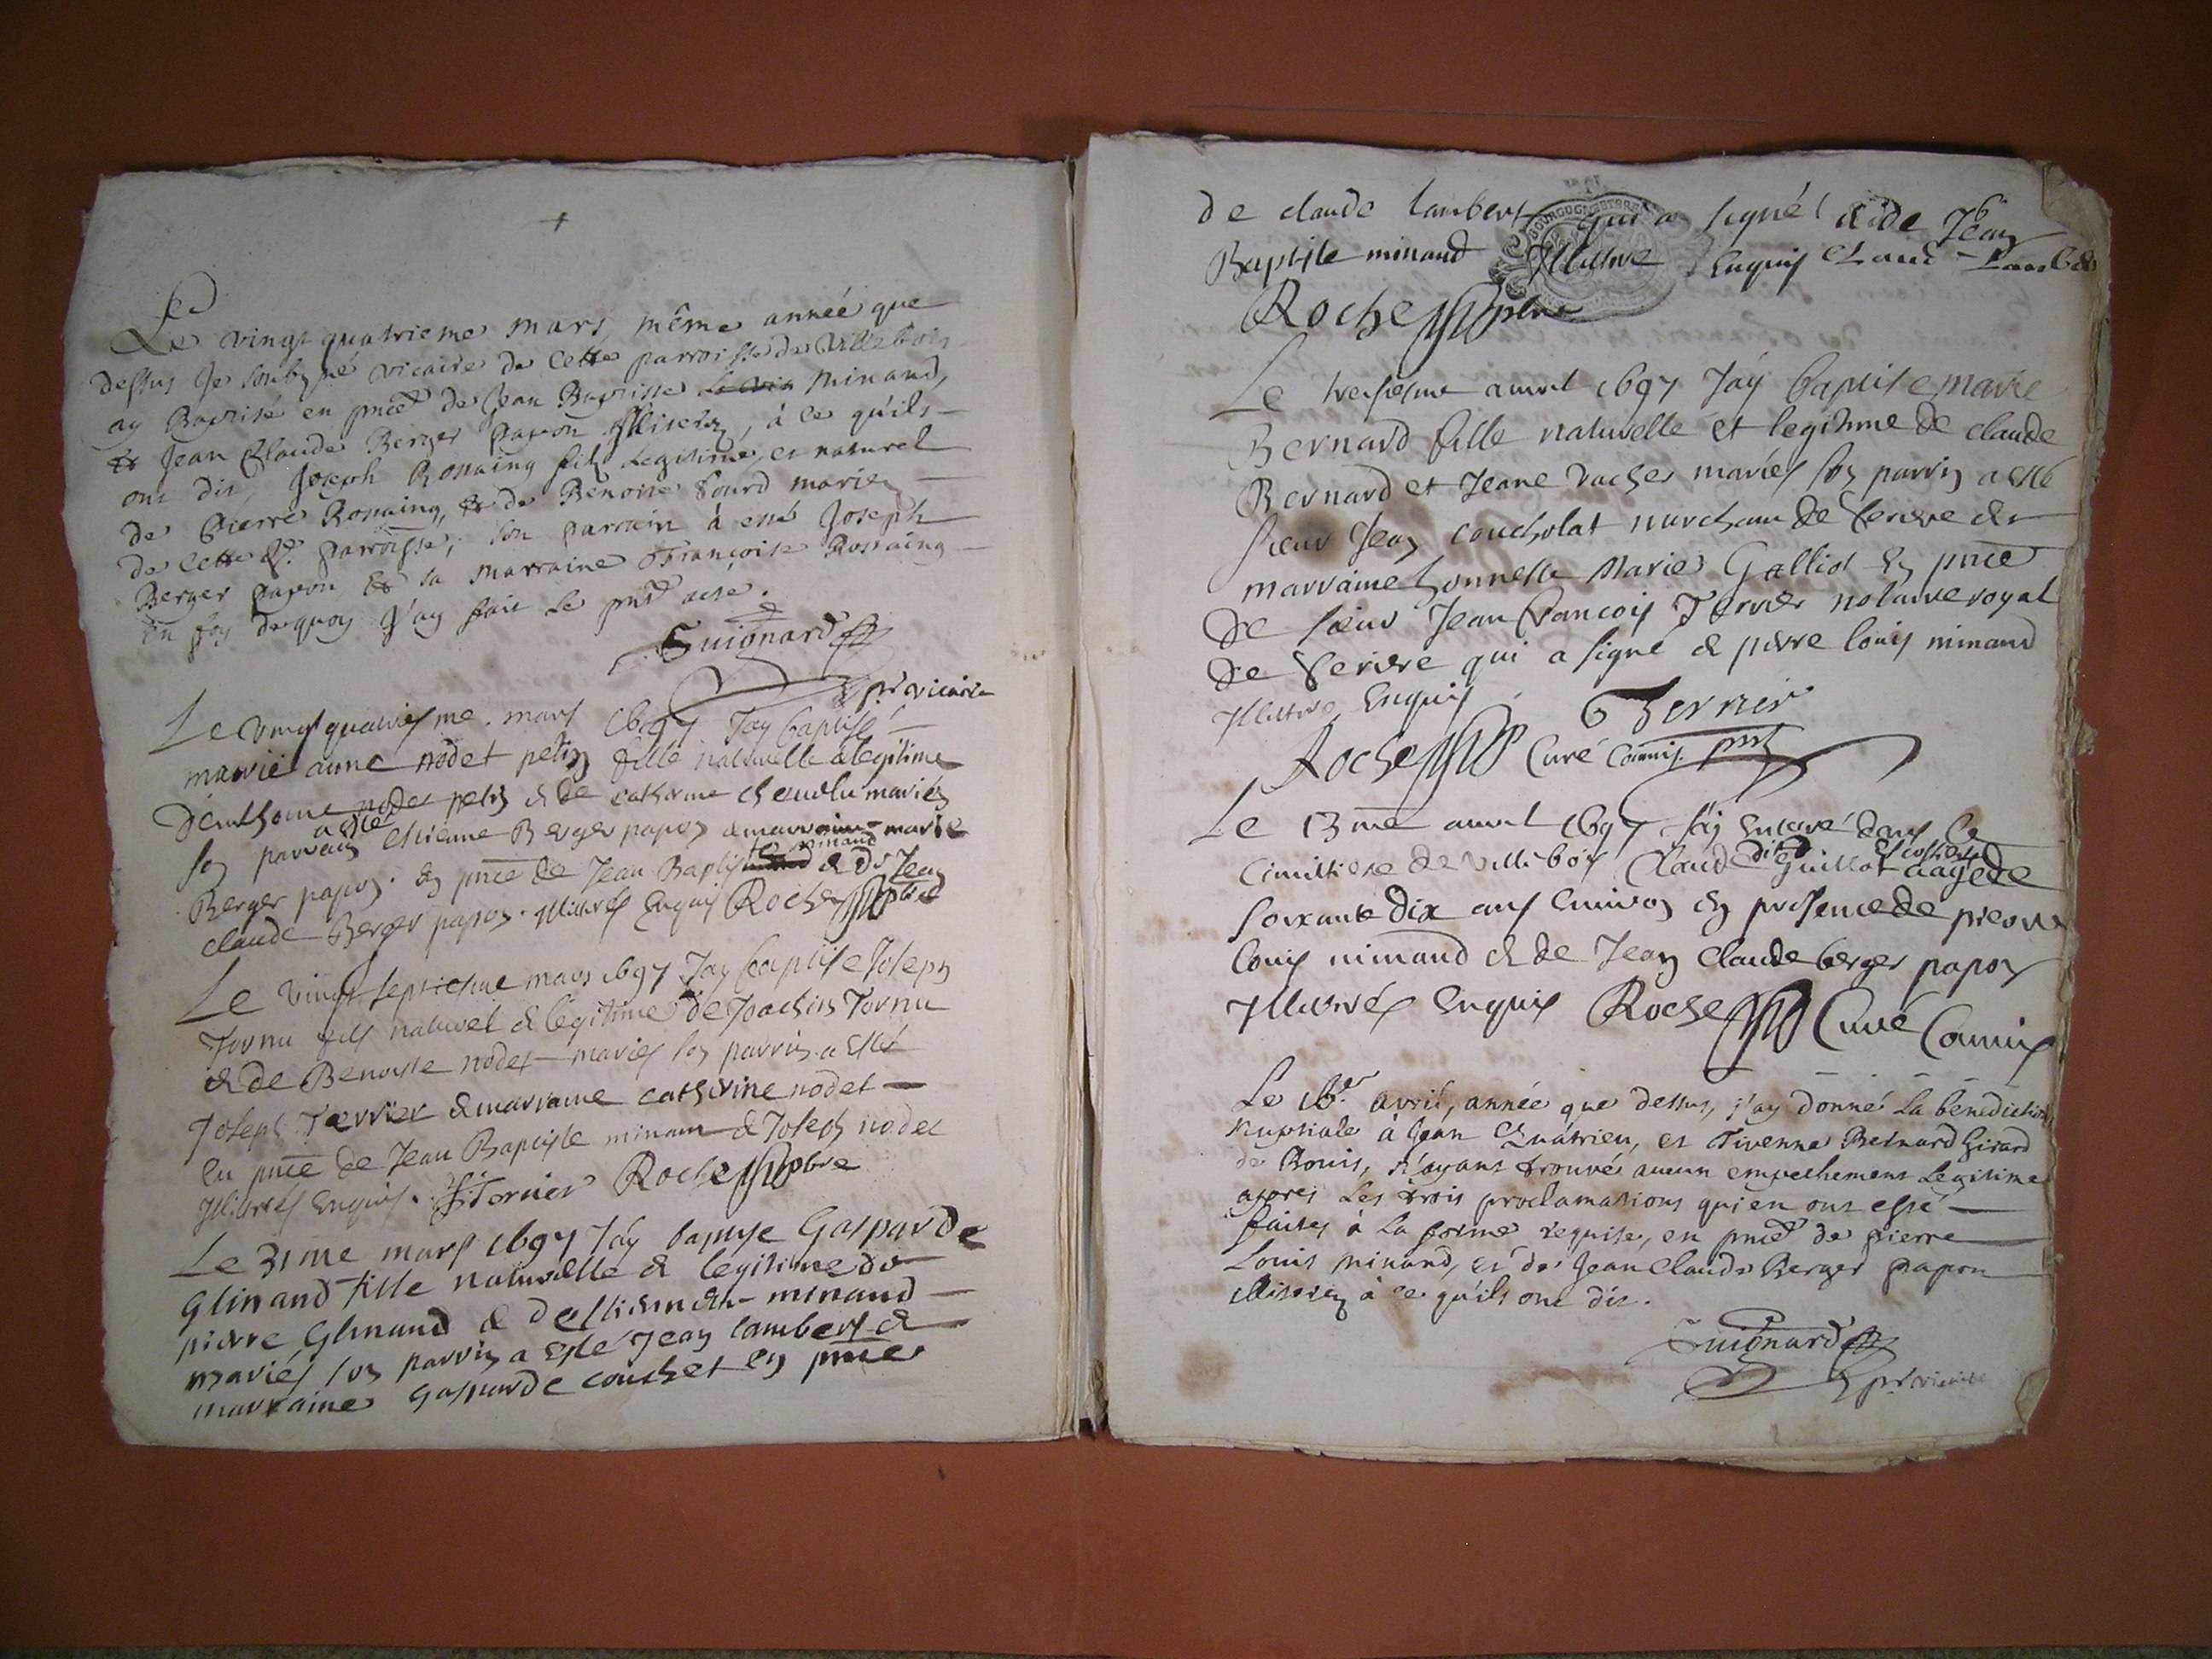 Le vingt quatrieme mars, même année que
dessus Je soubsigné vicaire de Cette parroisse de Villebois
ay Baptisé en pnce de Jean Baptiste Minand,
& Jean Claude Berger papon Illiterez, à ce qu'ils
ont dit, Joseph Rossaing fils Legitime, et naturel
de Pierre Rossaing, & de Benoite Sourd mariez
de Cette de. parroisse; son parrain à esté Joseph
Berger papon & sa marraine Françoise Rossaing
en foy de quoy J'ay fait Le pnt acte.
Guignard
ptr vicaire
Le vingt quatriesme mars 1697 Jay baptisé
marie anne nodet petin fille naturelle & legitime
d'enthoine nodet petin & de catherine mariés
son parrain a esté estienne Berger papon & marraine marie
Berger papon. en pnce de Jean Baptiste minand & de Jean
claude Berger papon. Illitrés Enquis Roche pbre
Le vingt septiesme mars 1697 Jay baptise Joseph
Tornu fils naturel & legitime de Joachin Tornu
& de Benoiste nodet mariés son parrin a esté
Joseph Terrier & marraine catherine nodet
en pnce de Jean Baptiste minand & Joseph nodet
Illitrés Enquis. Terrier Roche pbre
Le 31me mars 1697 Jay baptise Gasparde
Glinand fille naturelle & legitime de
pierre Glinand & d'estiennette minand
mariés son parrin a esté Jean lambert &
marraine Gasparde couchet en pnce
de claude lambert qui a signé & de Jean
Baptiste minand Illitire Enquis Claud Lambert
Roche pbre
Le tresiesme avril 1697 Jay baptise marie
Bernard fille naturelle et legitime de claude
Bernard et Jeane vacher mariés son parrin a esté
sieur Jean coucholat marchand de seriere &
marraine honneste Marie Galliot En pnce
de sieur Jean francois Terrier notaire royal
de Seriere qui a signé & pierre louis minand
Illitire Enquis Terrier
Roche Curé Commis
Le 13me avril 1697 Jay Enterré dans le
cimittiere de villebois Claude Guillot dit aagé de
soixante dix ans Environ En presence de pierre
louis minand & de Jean Claude berger papon
Illitirés Enquis Roche Curé Commis
Le 16e. avril, année que dessus, j'ay donné La bénédiction
Nuptiale à Jean Quátrieu, et Tivenne Bernard Girard
de Bouis, n'ayant trouvé aucun empechement Legitime
apres Les trois proclamations qui en ont esté
faites à La forme requise, en pnce de pierre
Louis Minand, et de Jean Claude Berger papon
illiterez à ce qu'ils ont dit.
Guignard
ptr vicaire